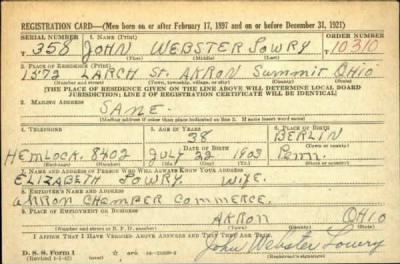 REGISTRATION CARD—(Men born on or after February 17, 1897 and on or before December 31, 1921)
SERIAL NUMBER 1. NAME (Print) ORDER NUMBER
T 358 JOHN WEBSTER LOWRY 10310
(First) (Middle) (Last)
2. PLACE OF RESIDENCE (Print)
1572 LARCH St. AKRON Summit OHIO
(Number and street) (Town, township, village, or city) (County) (State)
[THE PLACE OF RESIDENCE GIVEN ON THE LINE ABOVE WILL DETERMINE LOCAL BOARD
JURISDICTION; LINE 2 OF REGISTRATION CERTIFICATE WILL BE IDENTICAL]
3. MAILING ADDRESS
SAME.
[Mailing address if other than place indicated on line 2. If same insert word same]
4. TELEPHONE 5. AGE IN YEARS 6. PLACE OF BIRTH
38 BERLIN
DATE OF BIRTH (Town or county)
HEMLOCK. 8402 JULY 22 1903 Penn.
(Exchange) (Number) (Mo.) (Day) (Yr.) (State or country)
7. NAME AND ADDRESS OF PERSON WHO WILL ALWAYS KNOW YOUR ADDRESS
ELIZABETH LOWRY. WIFE.
8. EMPLOYER'S NAME AND ADDRESS
AKRON CHAMBER COMMERCE.
9. PLACE OF EMPLOYMENT OR BUSINESS
AKRON OHIO
(Number and street or R. F. D. number) (Town) (County) (State)
I AFFIRM THAT I HAVE VERIFIED ABOVE ANSWERS AND THAT THEY ARE TRUE.
D. S. S. Form 1
John Webster Lowry